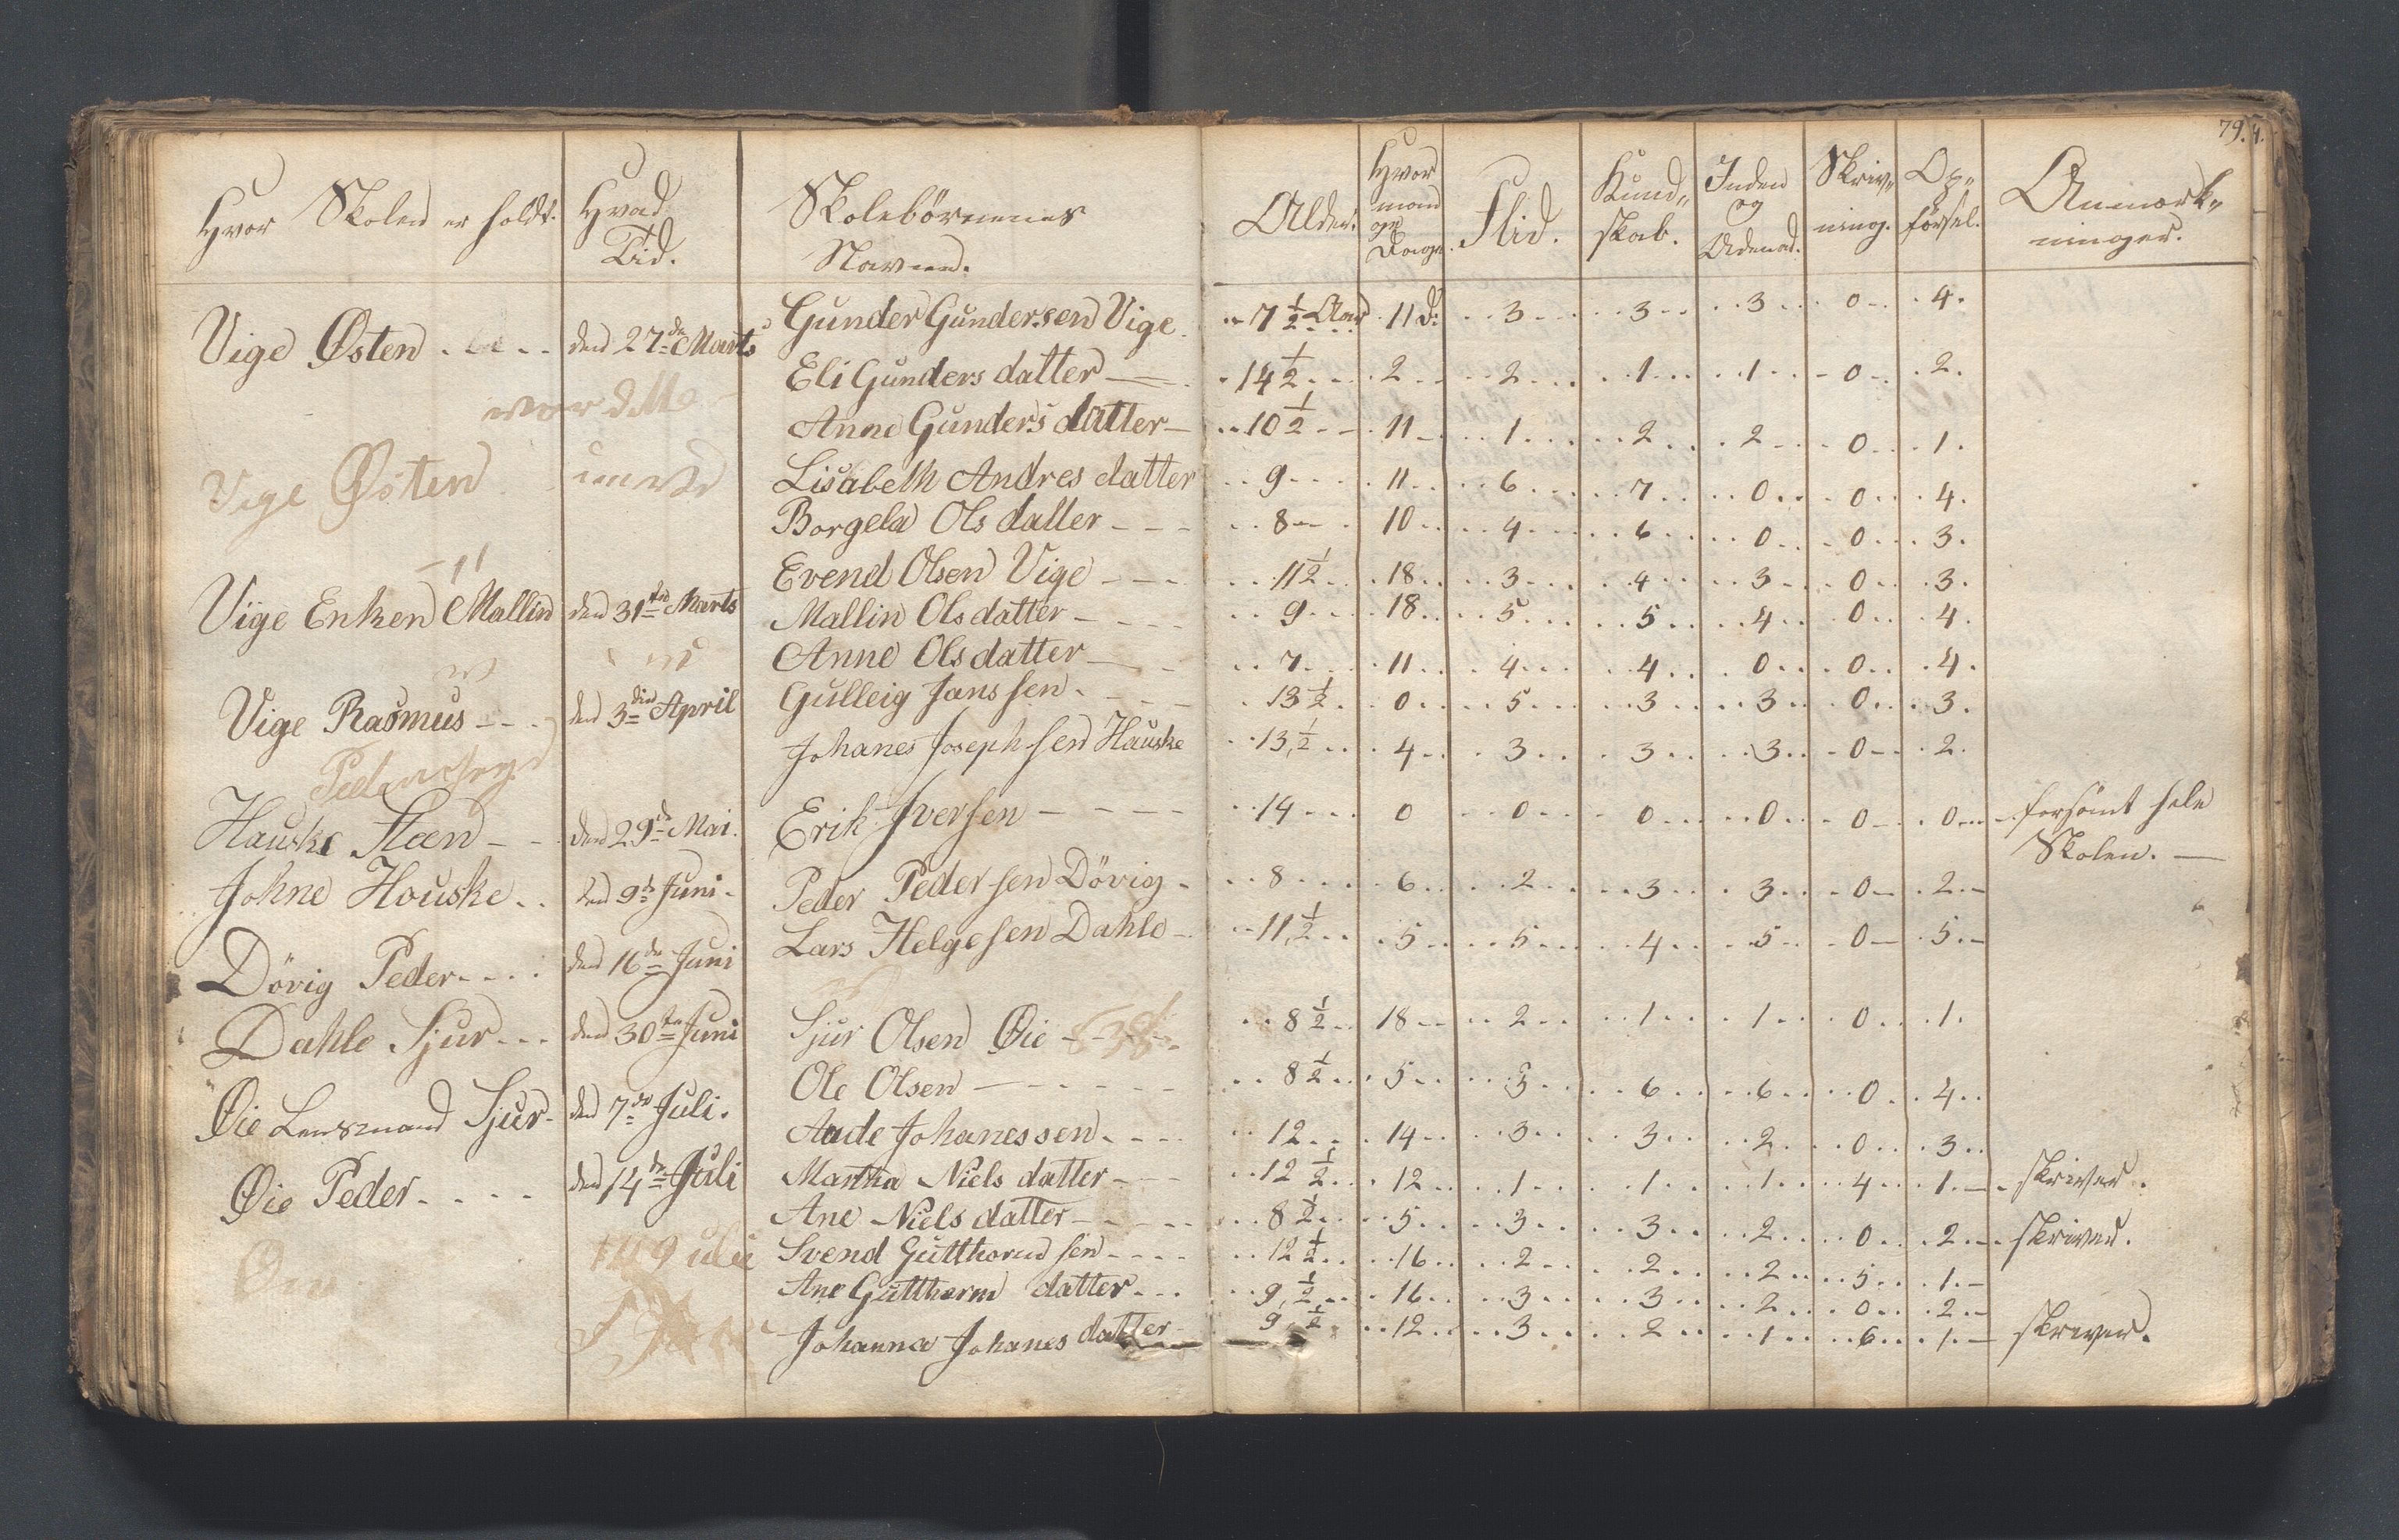 79. 4.
Hvor Skolen er holdt. Hvad Tid. Skolebörnenes Navne. Alder. Hvor mange Dage. Flid. Kund„ skab. Inden og Udenad. Skriv„ ning. Op„ førsel. Anmærk„ ninger.
Vige Østen den 27de Marts Gunder Gundersen Vige 7 1/2 Aar 11 d: 3 3 3 0 4.
Eli Gunders datter 14 1/2 2 2 1 1 0 2.
Anne Gunders datter 10 1/2 11 1 2 2 0 1.
Vige Østen
Lisabeth Andres datter 9 11 6 7 0 0 4.
Borgela Ols datter 8 10 4 6 0 0 3.
Evend Olsen Vige 11 1/2 18 3 4 3 0 3.
Vige Enken Mallin den 31te Marts Mallin Ols datter 9 18 5 5 4 0 4.
Anne Ols datter 7 11 4 4 0 0 4.
Vige Rasmus den 3die April Gulleig Jans sen 13 1/2 0 5 3 3 0 3.
Johanes Joseph sen Hauske 13 1/2 4 3 3 3 0 2.
Hauske Steen den 29de Mai. Erik Iversen 14 0 0 0 0 0 0 forsömt hele Skolen.
Johne Houske den 9de Juni Peder Pedersen Dövig 8 6 2 3 3 0 2
Dövig Peder den 16de Juni Lars Helgesen Dahle 11 1/2 5 5 4 5 0 5
Dahle Sjur den 30te Juni Sjur Olsen Øie 8 1/2 18 2 1 1 0 1.
Ole Olsen 8 1/2 5 3 6 6 0 4
Øie Lensmand Sjur den 7de Juli. Aade Johanessen 12 14 3 3 2 0 3
Øie Peder den 14de Juli Martha Niels datter 12 1/2 12 1 1 1 4 1 skriver.
Ane Niels datter 8 1/2 5 3 3 2 0 2 skriver.
Svend Gutthorm sen 12 1/2 16 2 2 2 5 1
Ane Gutthorm datter 9 1/2 16 3 3 2 0 2
Johanna Johanes datter 9 1/2 12 3 2 1 6 1 skriver.